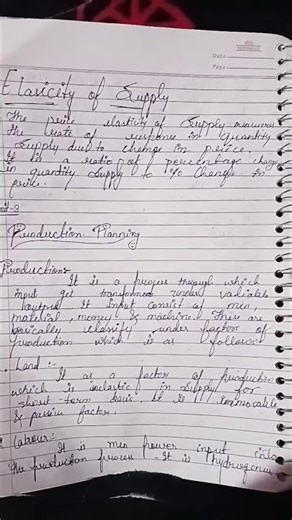 Date
Page
Elasicity of Supply
The price elastity of Supply measures
the rate of response in quantity
Supply due to change in price.
It is a ratio of percentage change
in quantity Supply to % Change in
price.
Production Planning
Production:-
It is a process through which
input get transformed under
output. It input consist of men
material, money & machine. There are
basically classify under factor of
production which is as follows:
Land :-
It is a factor of production
which is inelastic in supply for
short-term basis. It is immovable
& passive factor.
Labour:- It is men power input into
the production process. It is